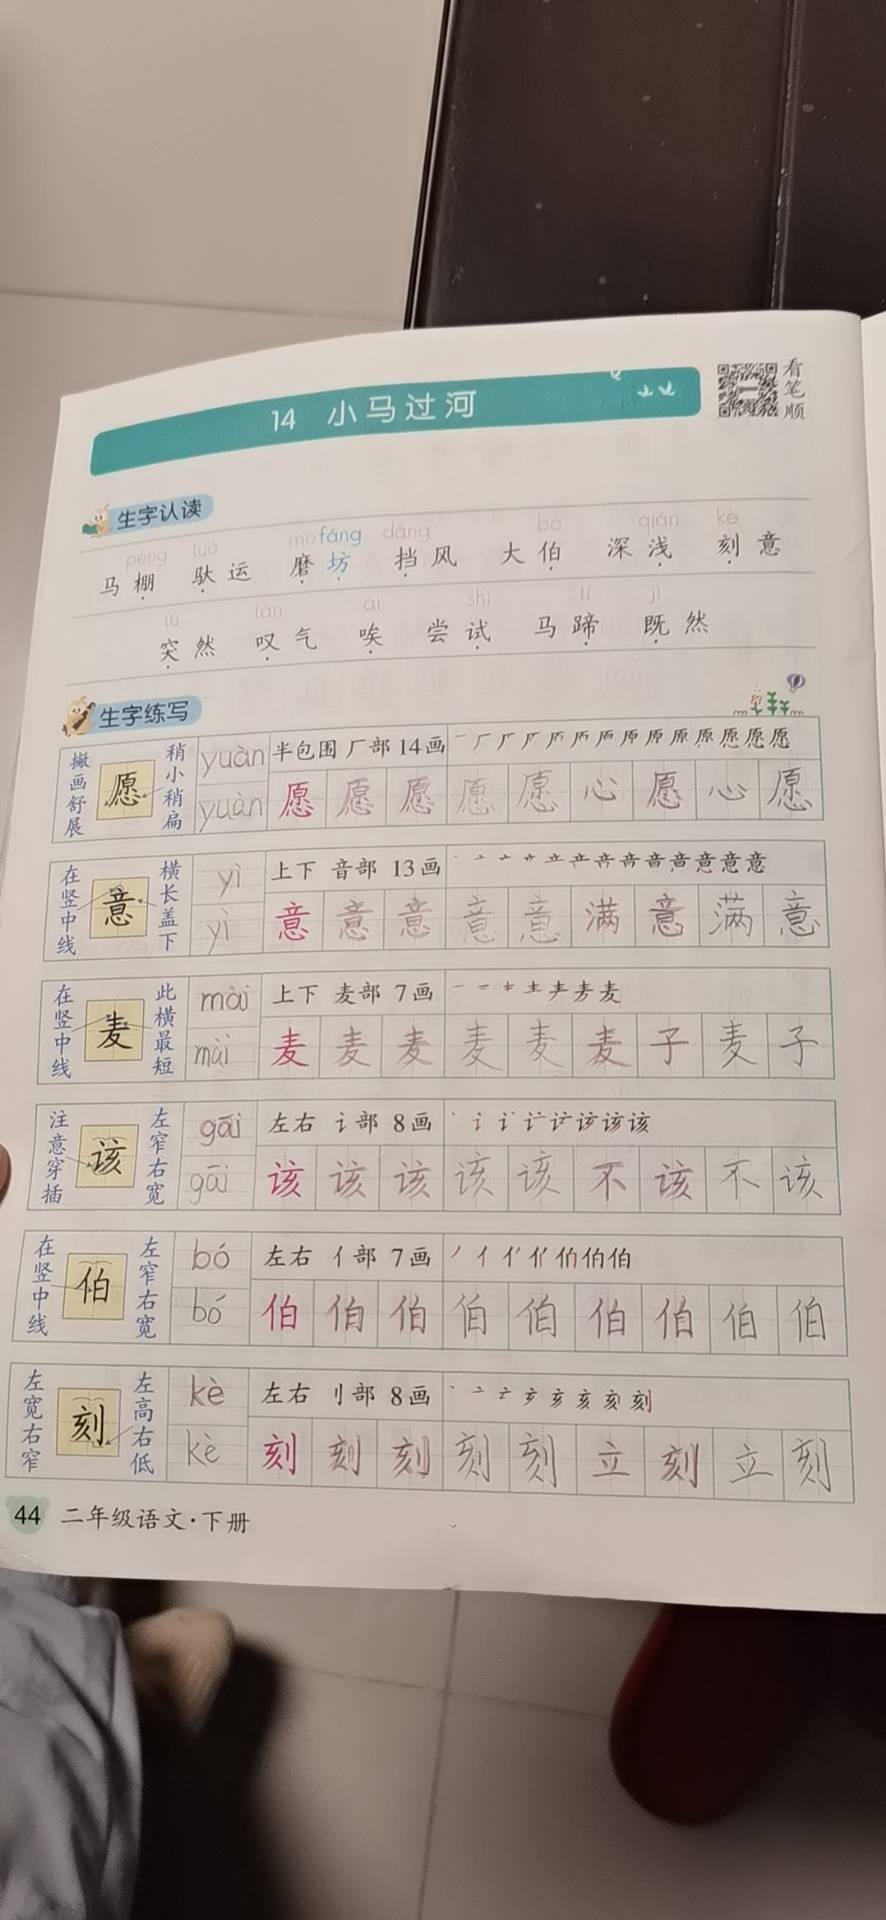 14 小马过河
看笔顺
生字认读
péng tuó mò fáng dǎng bó qiǎn kè
马棚 驮运 磨坊 挡风 大伯 深浅 刻意
tū tàn āi shì tí jì
突然 叹气 唉 尝试 马蹄 既然
生字练写
撇画舒展 愿 稍小稍扁 yuàn 半包围 厂部 14画 一 厂 厂 厈 厉 盾 盾 原 原 原 原 愿 愿 愿
yuàn 愿 愿 愿 愿 愿 心 愿 心 愿
在竖中线 意 横长盖下 yì 上下 音部 13画
yì 意 意 意 意 意 满 意 满 意
在竖中线 麦 此横最短 mài 上下 麦部 7画
mài 麦 麦 麦 麦 麦 麦 子 麦 子
注意穿插 该 左窄右宽 gāi 左右 讠部 8画
gāi 该 该 该 该 该 不 该 不 该
在竖中线 伯 左窄右宽 bó 左右 亻部 7画
bó 伯 伯 伯 伯 伯 伯 伯 伯 伯
左宽右窄 刻 左高右低 kè 左右 刂部 8画
kè 刻 刻 刻 刻 刻 立 刻 立 刻
44 二年级语文·下册